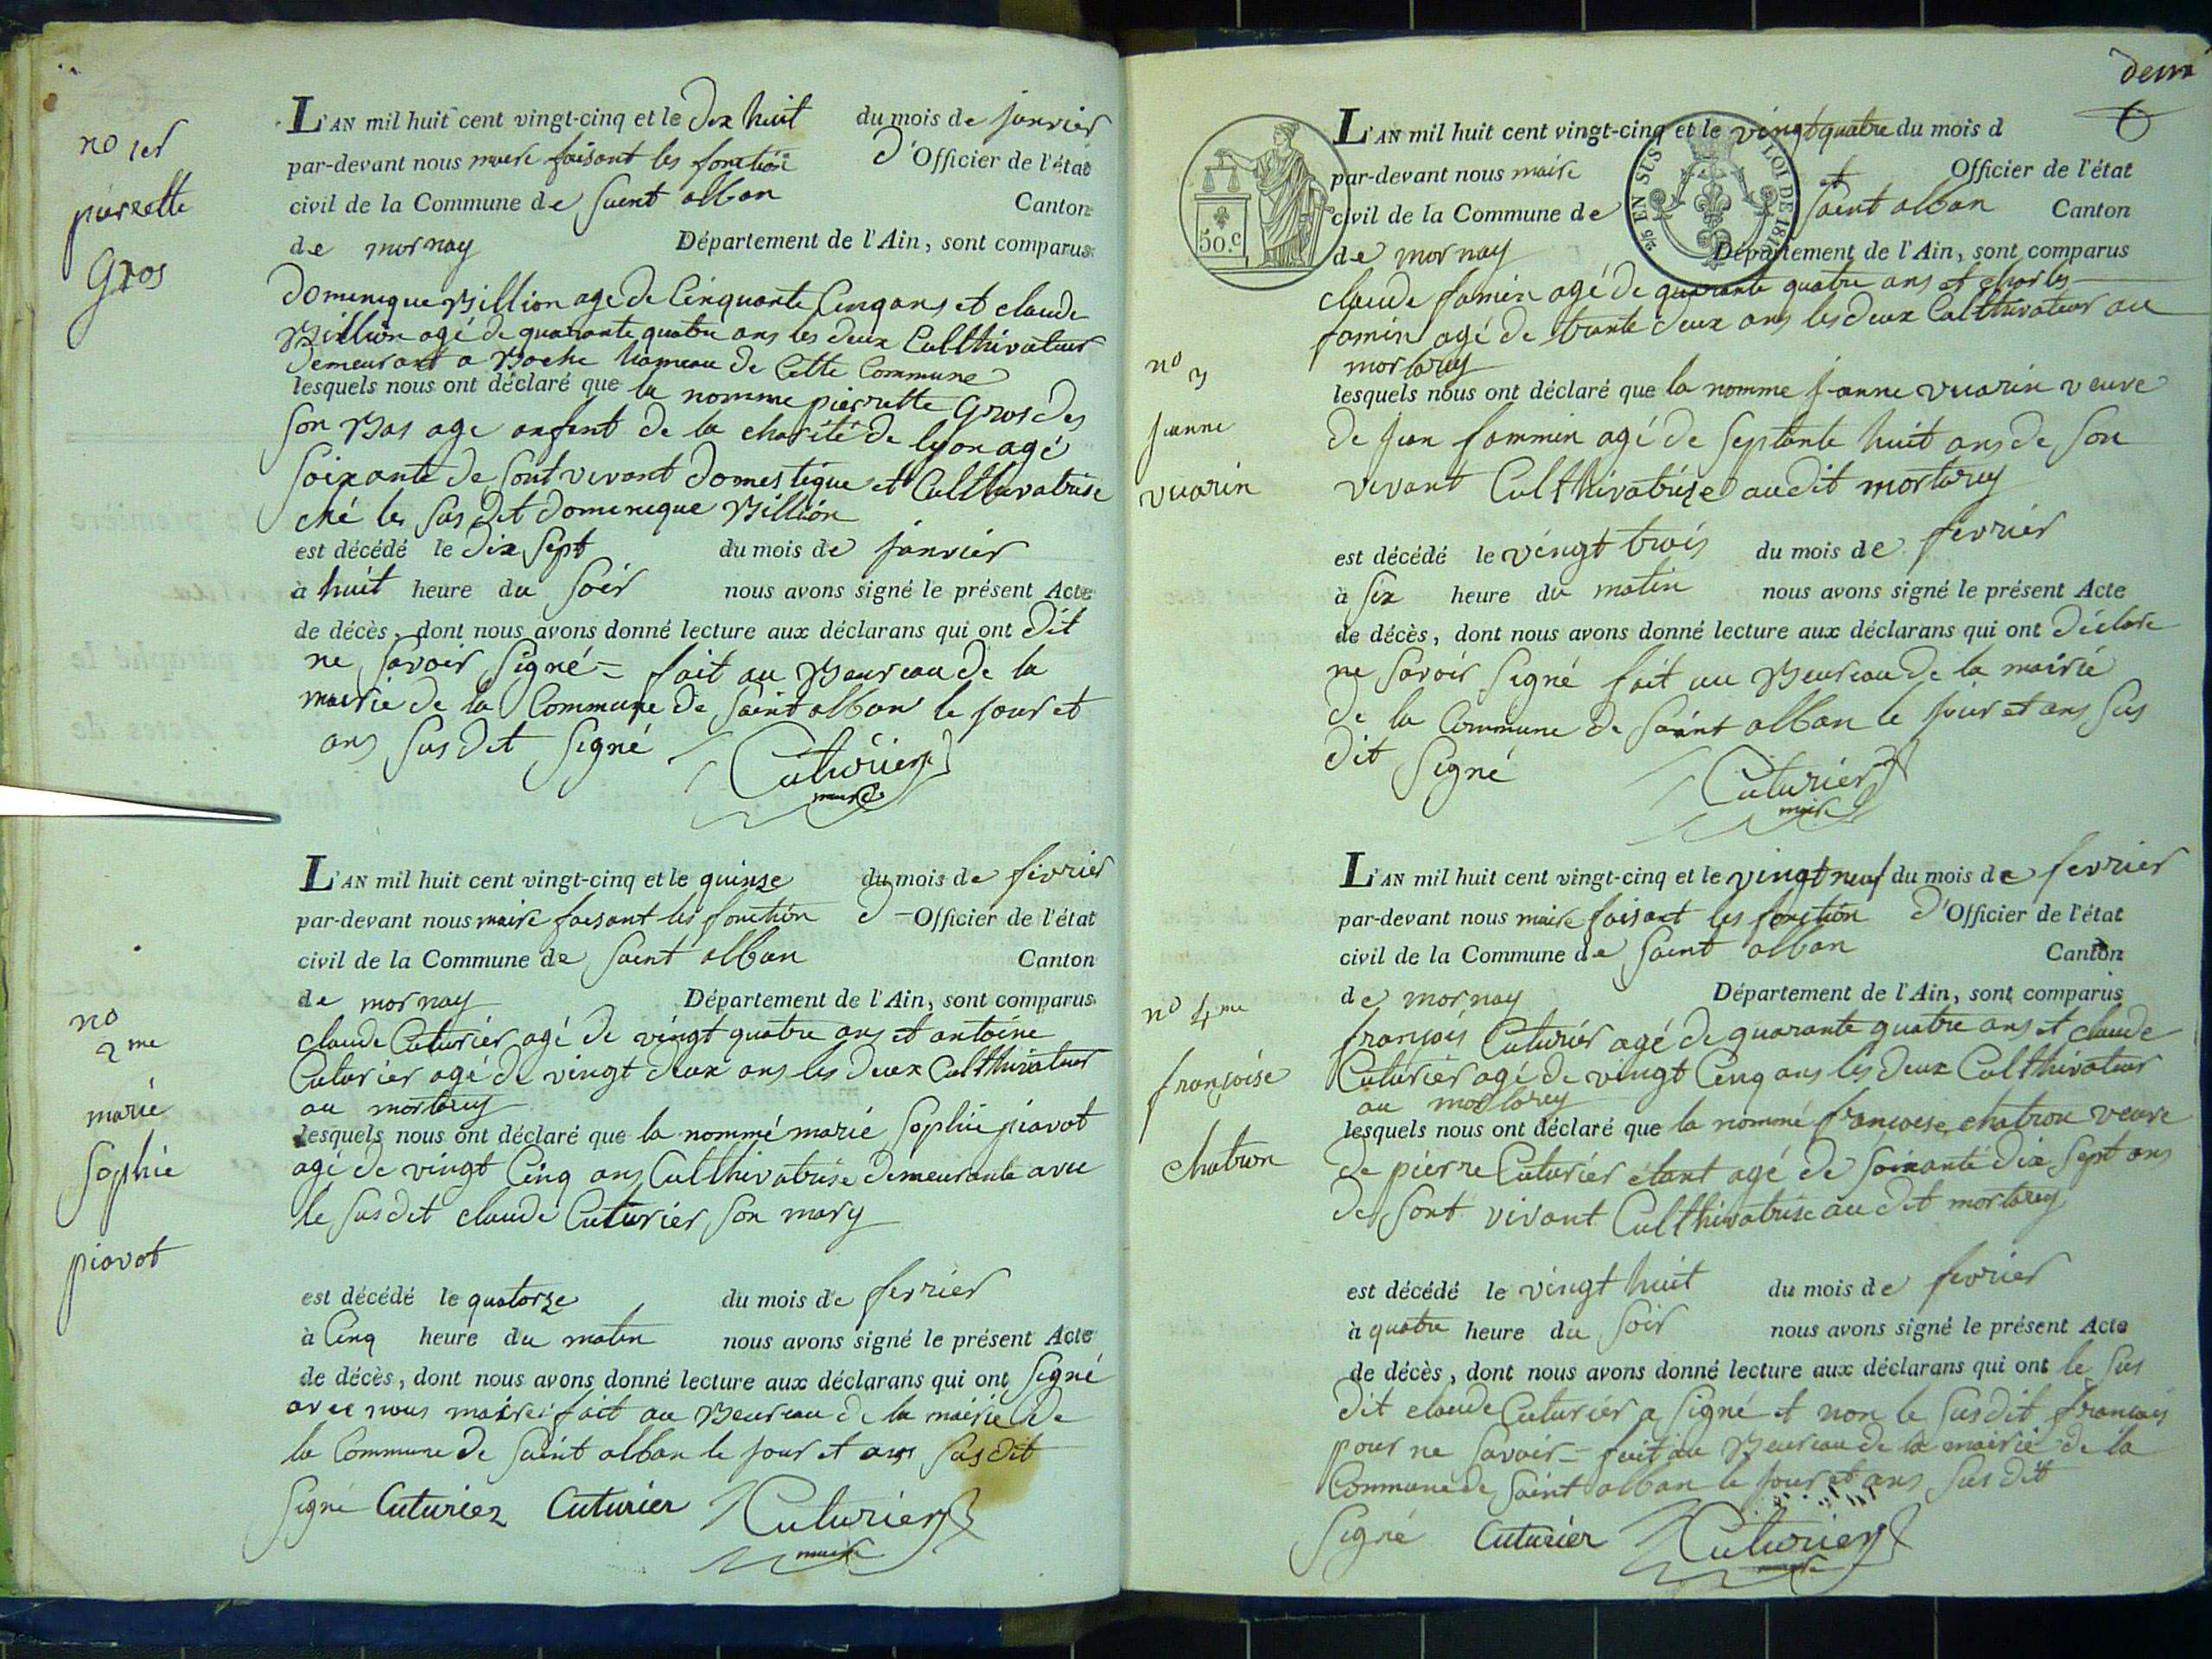 no 1er
pierrette
Gros
L'AN mil huit cent vingt-cinq et le dix huit du mois de janvier
par-devant nous maire faisant les fonction d'Officier de l'état
civil de la Commune de Saint alban Canton
de mornay Département de l'Ain, sont comparus
Dominique Billion agé de Cinquante Cinq ans et claude
Billion agé de quarante quatre ans les deux Culthivateur
demeurant a Boche hameau de Cette Commune
lesquels nous ont déclaré que la nomme pierrette Gros des
son Bas age anfent de la charité de lyon agé
Soixante de Sont vivant domestique et Culthivatrise
ché les Sus dit dominique Billion
est décédé le dix Sept du mois de janvier
à huit heure du Soir nous avons signé le présent Acte
de décès, dont nous avons donné lecture aux déclarans qui ont dit
ne Savoir Signé = fait au Beureau de la
mairie de la Commune de Saint alban le jour et
ans Sus dit Signé Cuturier
maire
no
2me
marie
Sophie
piavot
L'AN mil huit cent vingt-cinq et le quinse du mois de février
par-devant nous maire faisant les fonction d - Officier de l'état
civil de la Commune de Saint alban Canton
de mornay Département de l'Ain, sont comparus
claude Cuturier agé de vingt quatre ans et antoine
Cuturier agé de vingt deux ans les deux Culthivateur
au mortarey
lesquels nous ont déclaré que la nommé marie Sophie piavot
agé de vingt Cinq ans Culthivatrise demeurante avec
le Susdit claude Cuturier Son mary
est décédé le quatorze du mois de fevrier
à Cinq heure du matin nous avons signé le présent Acte
de décès, dont nous avons donné lecture aux déclarans qui ont Signé
avec nous maire fait au Beureau de la mairie de
la Commune de Saint alban le jour et ans Sus dit
Signé Cuturier Cuturier Cuturier
maire
deux
50.c
25 EN SUS
LOI DE 1816
L'AN mil huit cent vingt-cinq et le vingt quatre du mois d
par-devant nous maire Officier de l'état
civil de la Commune de Saint alban Canton
de mornay Département de l'Ain, sont comparus
no 3
janne
vuarin
claude famin agé de quarante quatre ans et charles
famin agé de trante deux ans les deux Culthivateur au
mortarey
lesquels nous ont déclaré que la nomme janne vuarin veuve
de jean fammin agé de Septante huit ans de Son
vivant Culthivatrise audit mortarey
est décédé le vingt trois du mois de février
à Six heure du matin nous avons signé le présent Acte
de décès, dont nous avons donné lecture aux déclarans qui ont déclaré
ne Savoir Signé fait au Beureau de la mairie
de la Commune de Saint alban le jour et ans Sus
dit Signé Cuturier
maire
no 4me
françoise
chatron
L'AN mil huit cent vingt-cinq et le vingt neuf du mois de fevrier
par-devant nous maire faisant les fonction d'Officier de l'état
civil de la Commune de Saint alban Canton
de mornay Département de l'Ain, sont comparus
françois Cuturier agé de quarante quatre ans et claude
Cuturier agé de vingt Cinq ans les deux Culthivateur
au mortarey
lesquels nous ont déclaré que la nommé françoise chatron veuve
de pierre Cuturier étant agé de Soixante dix Sept ans
de Sont vivant Culthivatrise au dit mortarey
est décédé le vingt huit du mois de fevrier
à quatre heure du Soir nous avons signé le présent Acte
de décès, dont nous avons donné lecture aux déclarans qui ont le Sus
dit claude Cuturier a Signé et non le Susdit françois
pour ne Savoir = fait au Beureau de la mairie de la
Commune de Saint alban le jour et ans Sus dit
Signé Cuturier Cuturier
maire